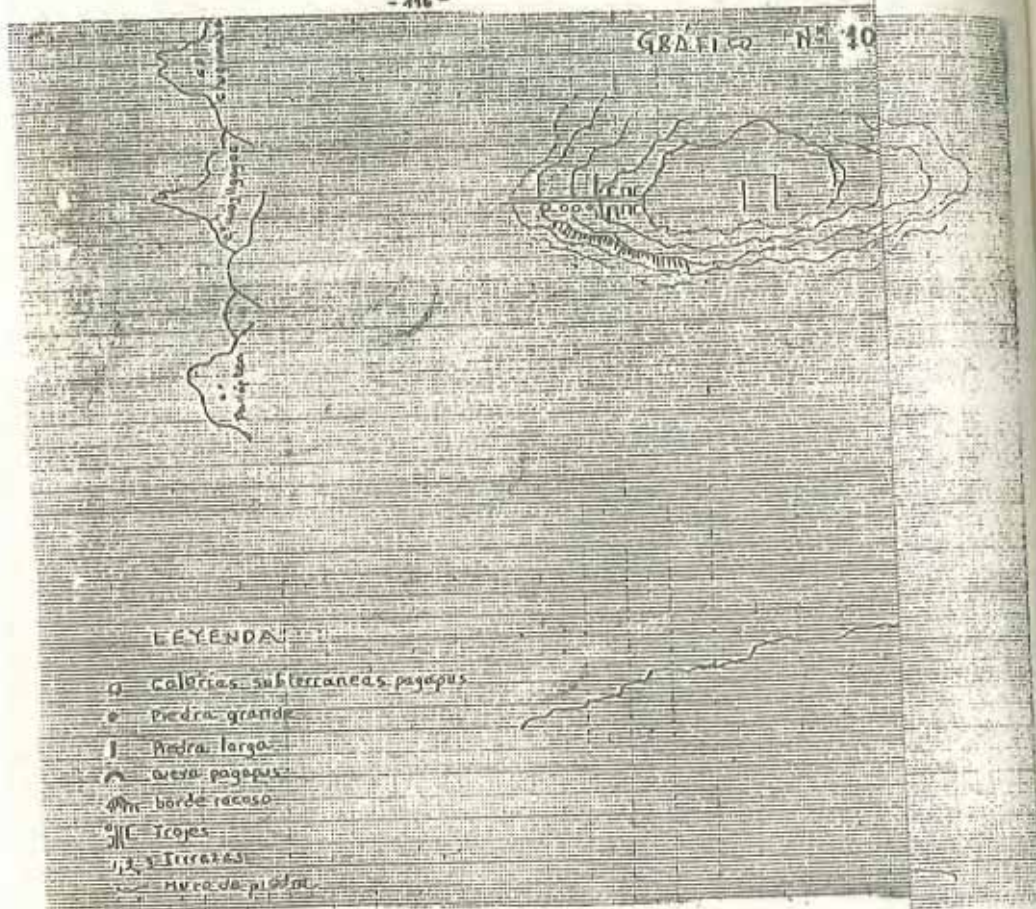 - 116 -
GRÁFICO Nº 10
LEYENDA
Galerías subterraneas pagapus
Piedra grande
Piedra larga
cueva pagapus
borde rocoso
Trojes
1, 2, 3 Terrazas
Muro de piedra